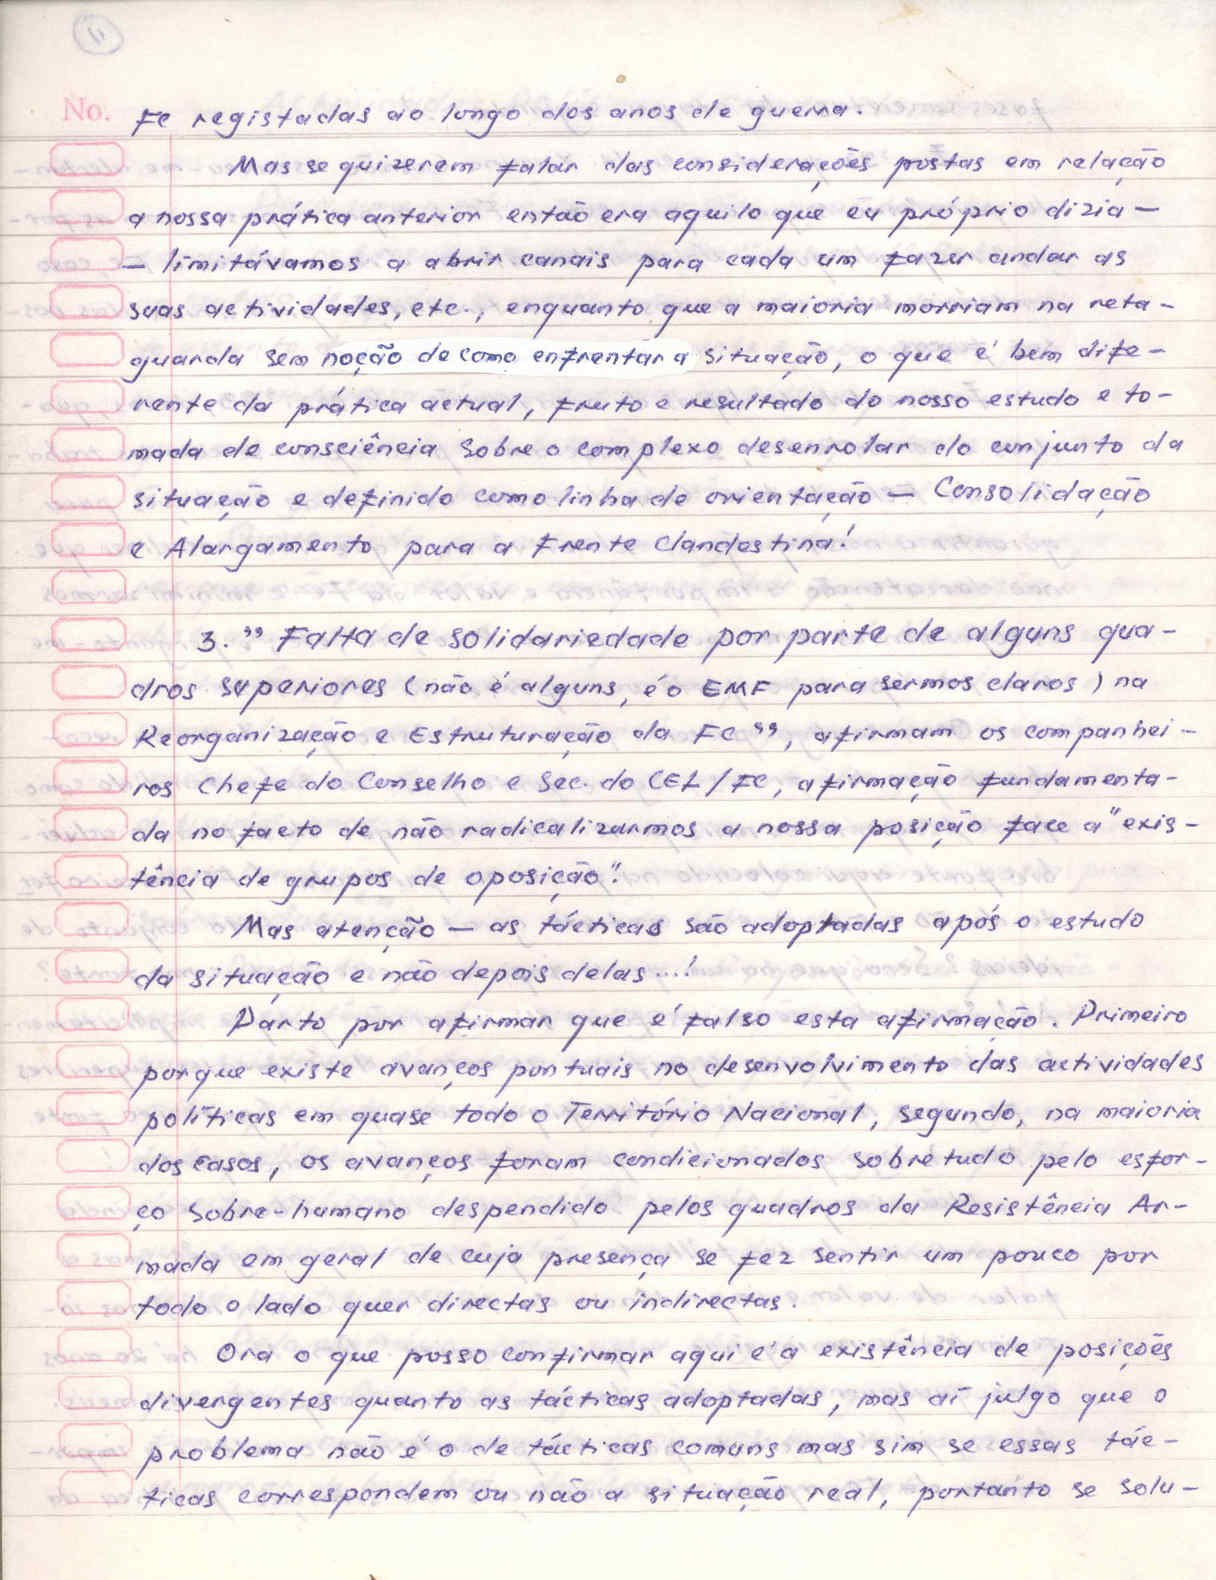 11
No. FC registadas ao longo dos anos de guerra.
Mas se quizerem falar das considerações postas em relação
a nossa prática anterior então era aquilo que eu próprio dizia —
— limitávamos a abrir canais para cada um fazer andar as
suas actividades, etc., enquanto que a maioria morriam na reta-
guarda sem noção de como enfrentar a situação, o que é bem dife-
rente da prática actual, fruto e resultado do nosso estudo e to-
mada de consciência sobre o complexo desenrolar do conjunto da
situação e definido como linha de orientação — Consolidação
e Alargamento para a Frente Clandestina!
3. " Falta de solidariedade por parte de alguns qua-
dros superiores (não é alguns, é o EMF para sermos claros) na
Reorganização e Estruturação da FC ", afirmam os companhei-
ros Chefe do Conselho e Sec. do CEL/FC, afirmação fundamenta-
da no facto de não radicalizarmos a nossa posição face a "exis-
tência de grupos de oposição".
Mas atenção — as tácticas são adoptadas após o estudo
da situação e não depois delas...!
Parto por afirmar que é falso esta afirmação. Primeiro
porque existe avanços pontuais no desenvolvimento das actividades
políticas em quase todo o Território Nacional, segundo, na maioria
dos casos, os avanços foram condicionados sobretudo pelo esfor-
ço sobre-humano despendido pelos quadros da Resistência Ar-
mada em geral de cuja presença se fez sentir um pouco por
todo o lado quer directas ou indirectas.
Ora o que posso confirmar aqui é a existência de posições
divergentes quanto as tácticas adoptadas, mas aí julgo que o
problema não é o de tácticas comuns mas sim se essas tác-
ticas correspondem ou não a situação real, portanto se solu-